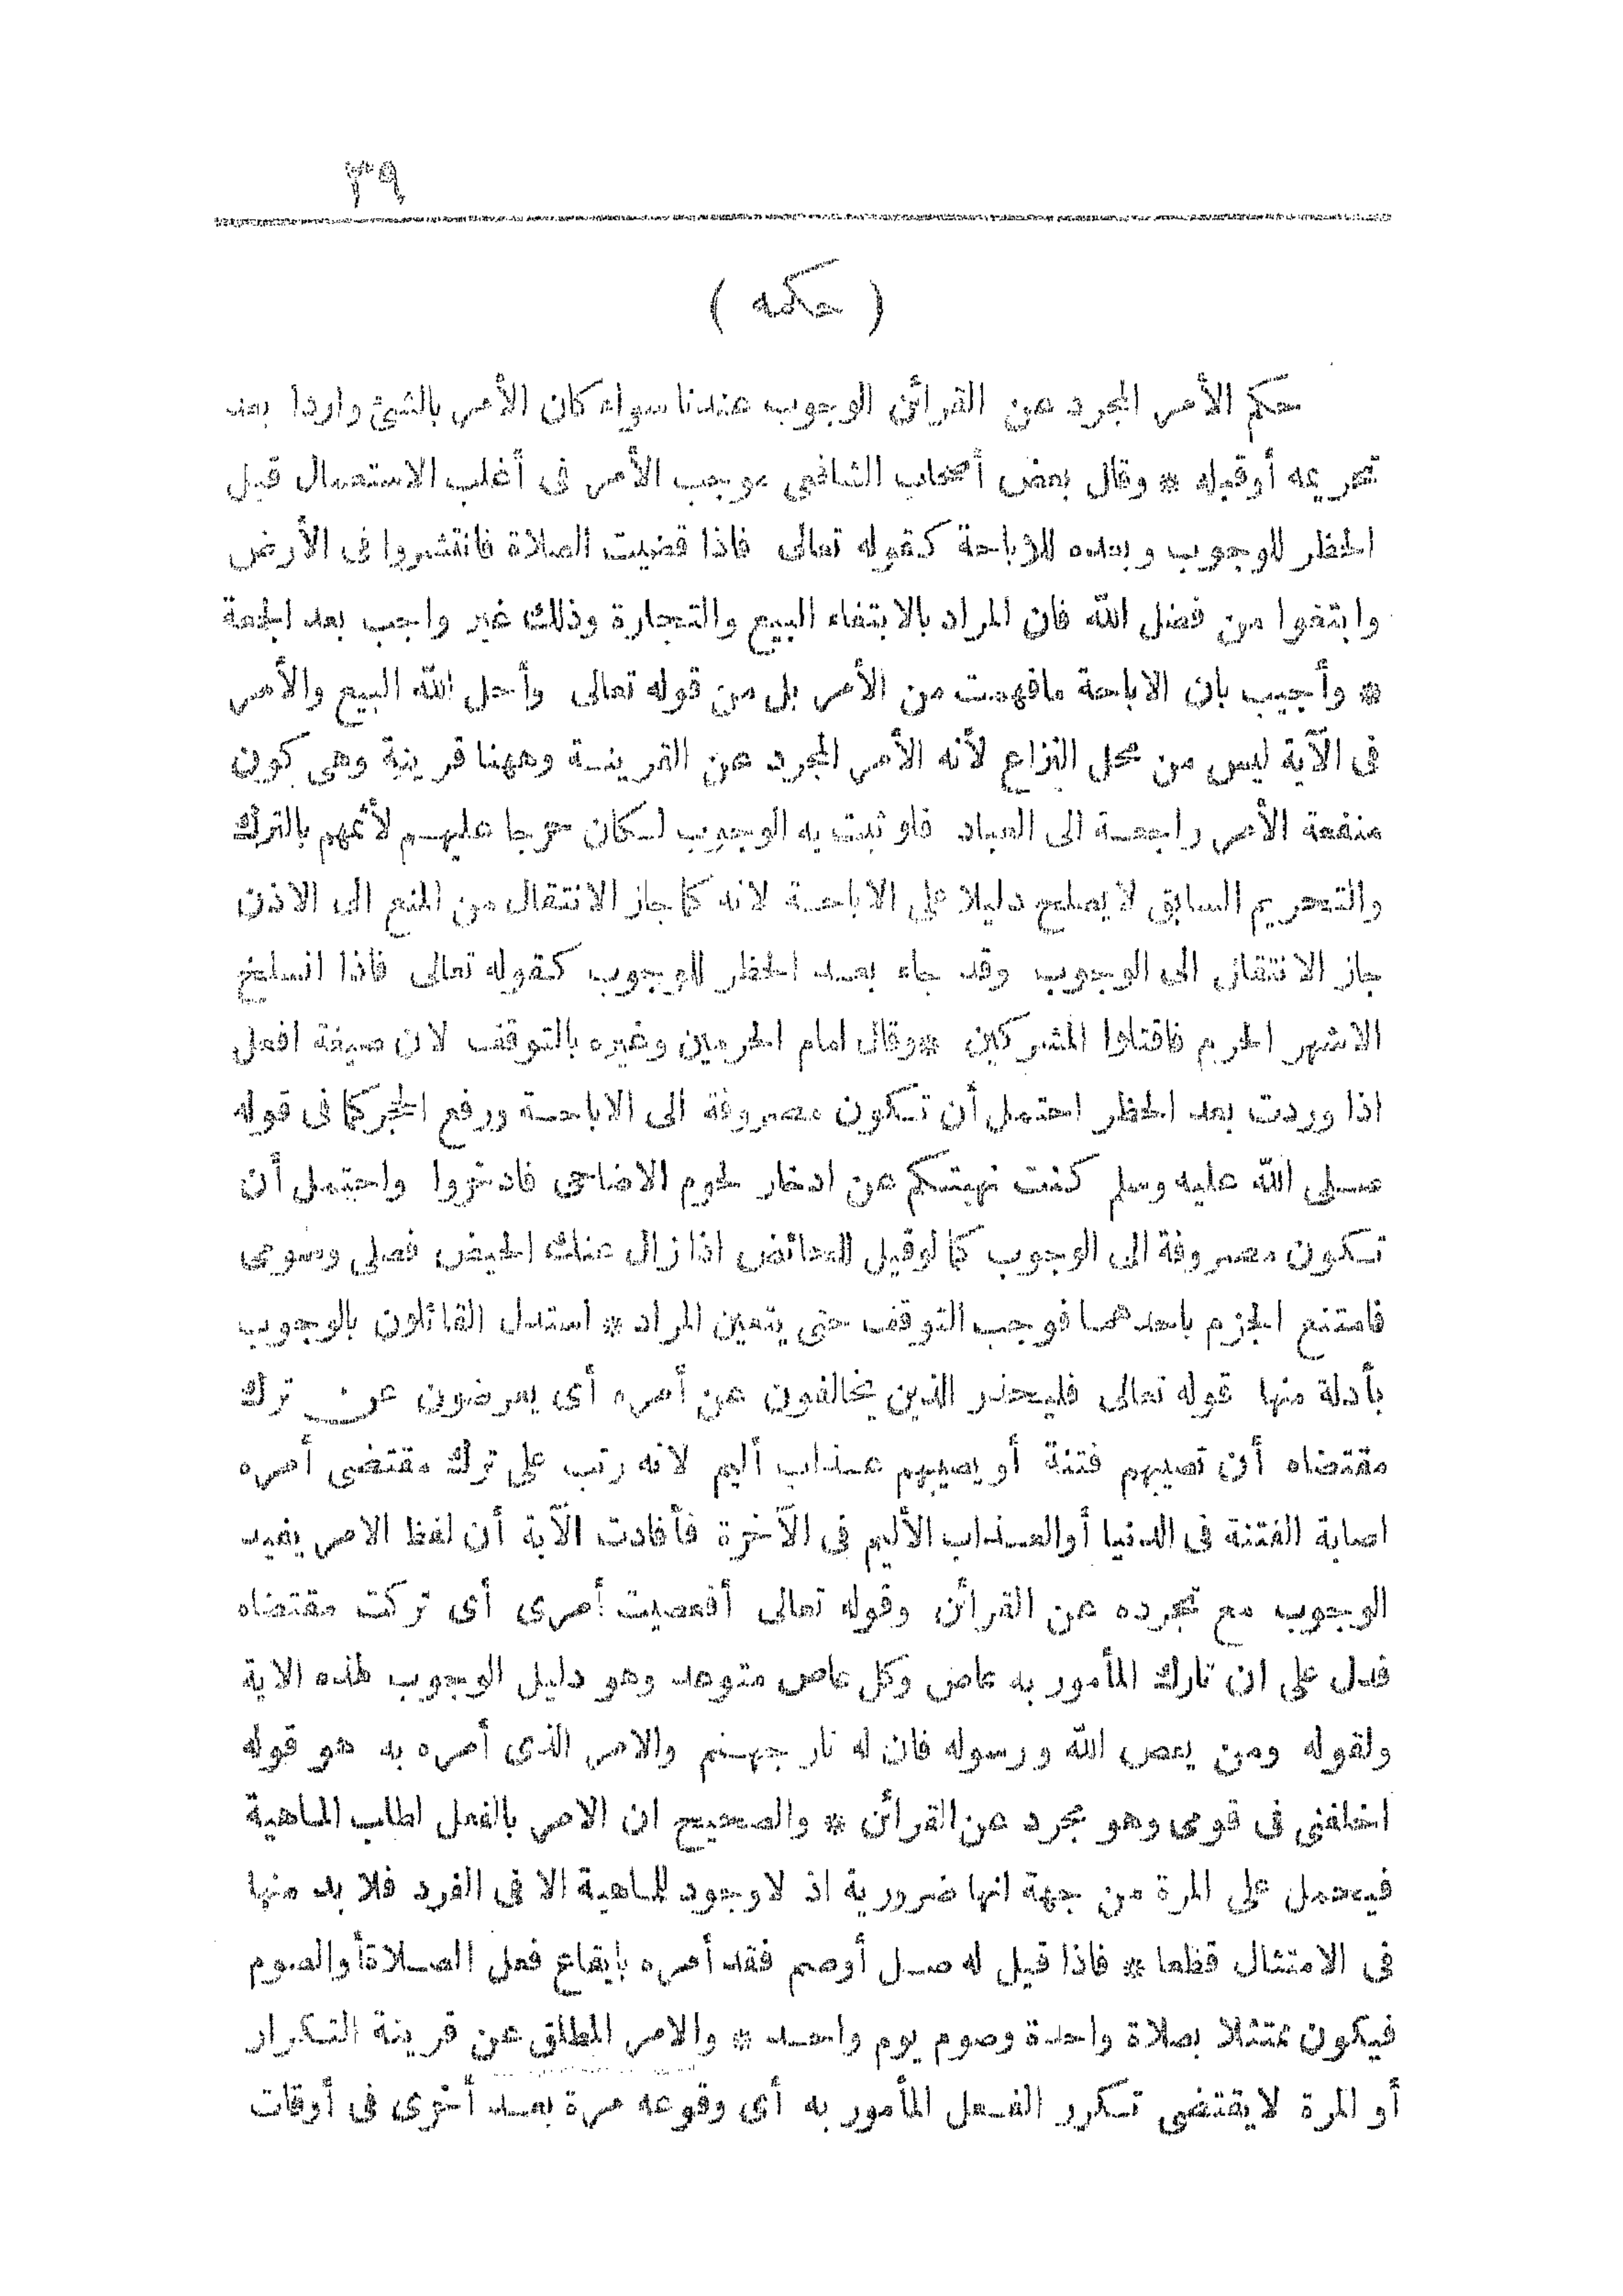 ٣٩
( حكمه )
حكم الأمر المجرد عن القرائن الوجوب عندنا سواء كان الأمر بالشئ واردا بعد
تحريمه أوقبله * وقال بعض أصحاب الشافعى موجب الأمر فى أغلب الاستعمال قبل
الحظر للوجوب وبعده للاباحة كقوله تعالى فاذا قضيت الصلاة فانتشروا فى الأرض
وابتغوا من فضل الله فان المراد بالابتغاء البيع والتجارة وذلك غير واجب بعد الجمعة
* وأجيب بان الاباحة مافهمت من الأمر بل من قوله تعالى وأحل الله البيع والأمر
فى الآية ليس من محل النزاع لأنه الأمر المجرد عن القرينة وههنا قرينة وهى كون
منفعة الأمر راجعة الى العباد فلو ثبت به الوجوب لكان حرجا عليهم لأثمهم بالترك
والتحريم السابق لايصلح دليلا على الاباحة لانه كما جاز الانتقال من المنع الى الاذن
جاز الانتقال الى الوجوب وقد جاء بعد الحظر للوجوب كقوله تعالى فاذا انسلخ
الاشهر الحرم فاقتلوا المشركين *وقال امام الحرمين وغيره بالتوقف لان صيغة افعل
اذا وردت بعد الحظر احتمل أن تكون مصروفة الى الاباحة ورفع الحجر كما فى قوله
صلى الله عليه وسلم كنت نهيتكم عن ادخار لحوم الاضاحى فادخروا واحتمل أن
تكون مصروفة الى الوجوب كما لوقيل للحائض اذا زال عنك الحيض فصلى وصومى
فامتنع الجزم باحدهما فوجب التوقف حتى يتعين المراد * استدل القائلون بالوجوب
بأدلة منها قوله تعالى فليحذر الذين يخالفون عن أمره أى يعرضون عن ترك
مقتضاه أن تصيبهم فتنة أو يصيبهم عذاب أليم لانه رتب على ترك مقتضى أمره
اصابة الفتنة فى الدنيا أوالعذاب الأليم فى الآخرة فأفادت الآية أن لفظ الامر يفيد
الوجوب مع تجرده عن القرائن وقوله تعالى أفعصيت أمرى أى تركت مقتضاه
فدل على ان تارك المأمور به عاص وكل عاص متوعد وهو دليل الوجوب لهذه الاية
ولقوله ومن يعص الله ورسوله فان له نار جهنم والامر الذى أمره به هو قوله
اخلفنى فى قومى وهو مجرد عن القرائن * والصحيح ان الامر بالفعل لطلب الماهية
فيحمل على المرة من جهة انها ضرورية اذ لاوجود للماهية الا فى الفرد فلا بد منها
فى الامتثال قطعا * فاذا قيل له صل أوصم فقد أمره بايقاع فعل الصلاة أوالصوم
فيكون ممتثلا بصلاة واحدة وصوم يوم واحد * والامر المطلق عن قرينة التكرار
أو المرة لايقتضى تكرر الفعل المأمور به أى وقوعه مرة بعد أخرى فى أوقات